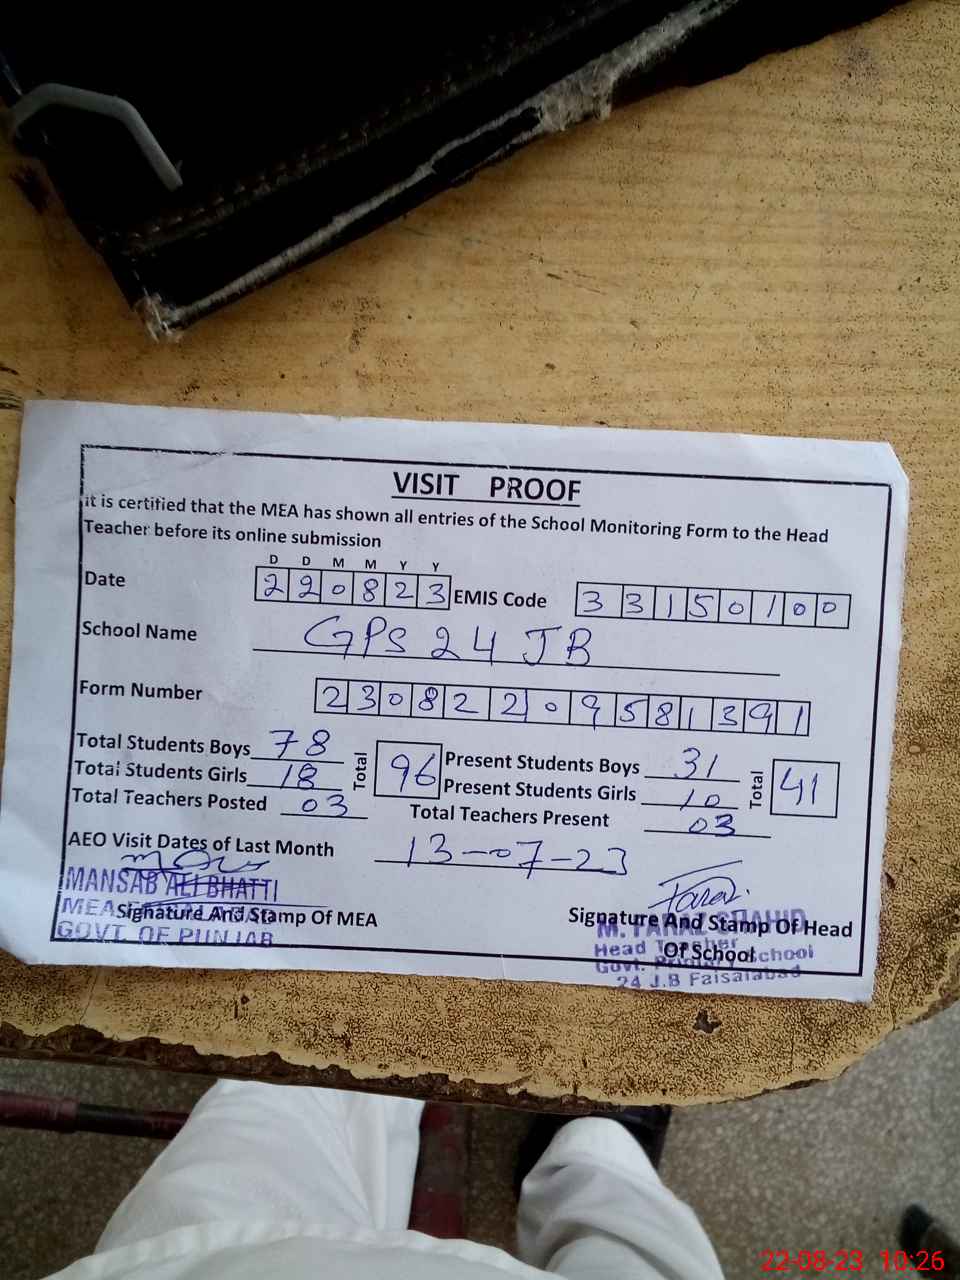 VISIT PROOF
it is certified that the MEA has shown all entries of the School Monitoring Form to the Head
Teacher before its online submission
D D M M Y Y
Date 2 2 0 8 2 3 EMIS Code 3 3 1 5 0 1 0 0
School Name GPS 24 JB
Form Number 2 3 0 8 2 2 2 0 9 5 8 1 3 9 1
Total Students Boys 78 Total 96 Present Students Boys 31 Total 41
Total Students Girls 18 Present Students Girls 10
Total Teachers Posted 03 Total Teachers Present 03
AEO Visit Dates of Last Month 13-07-23
MANSAB ALI BHATTI
MEA
GOVT. OF PUNJAB
Signature And Stamp Of MEA
Signature And Stamp Of Head
Of School
M. FARAZ SHAHID
Head Teacher
Govt. Primary School
24 J.B Faisalabad
22-08-23 10:26